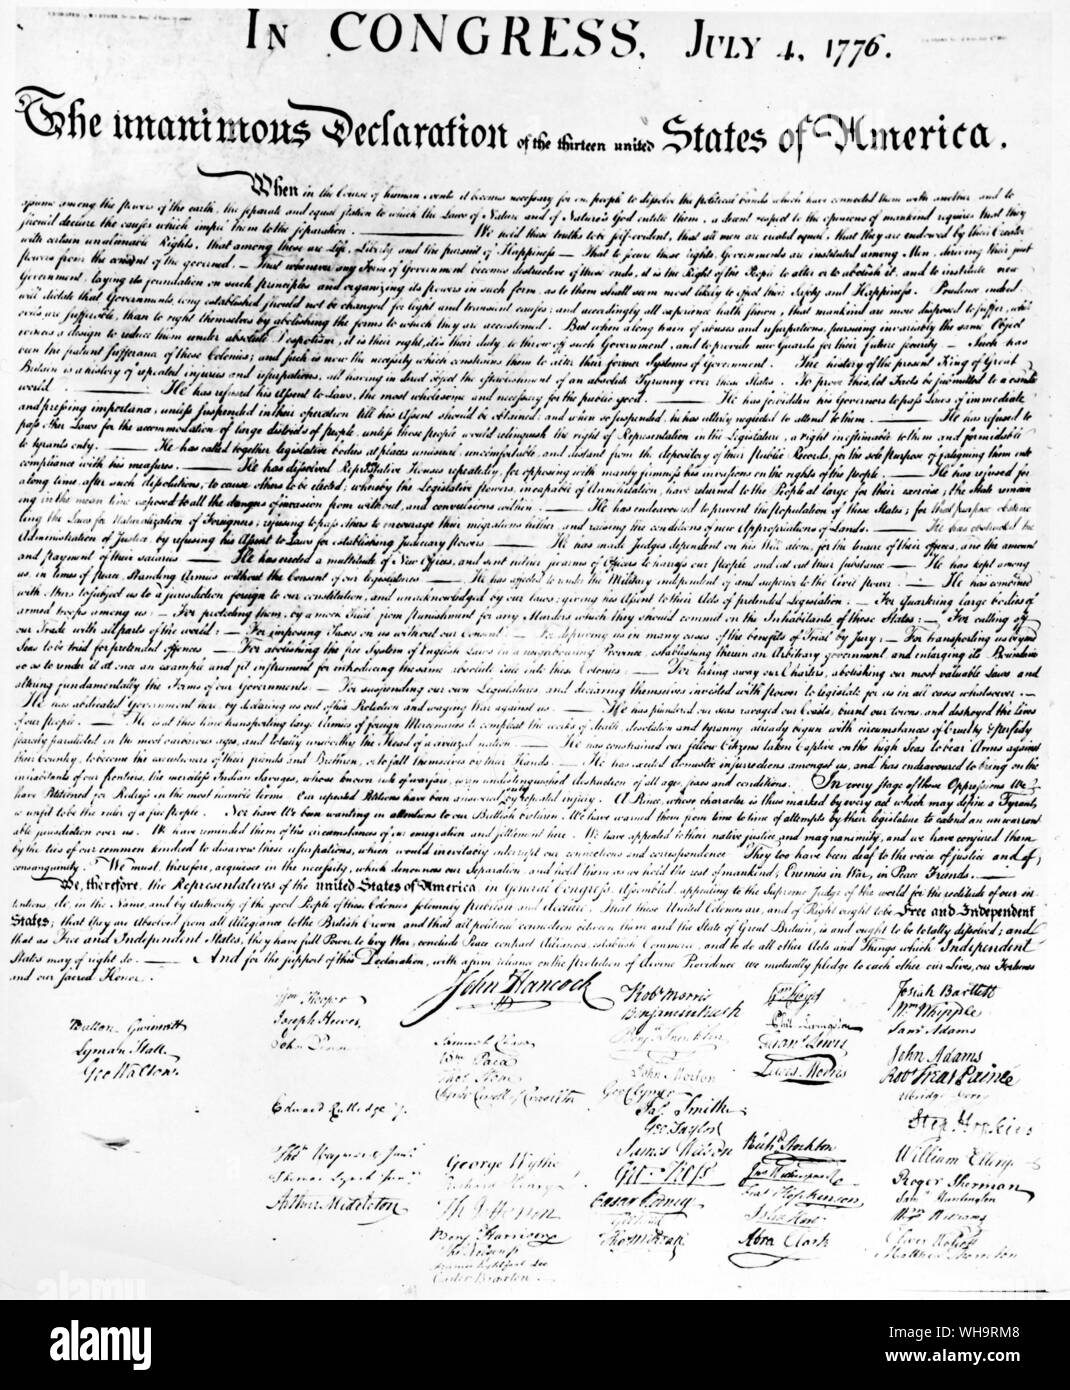 IN CONGRESS, JULY 4, 1776.
The unanimous Declaration of the thirteen united States of America.
When in the Course of human events it becomes necessary for one people to dissolve the political bands which have connected them with another and to
assume among the powers of the earth, the separate and equal station to which the Laws of Nature and of Nature's God entitle them, a decent respect to the opinions of mankind requires that they
should declare the causes which impel them to the separation. We hold these truths to be self-evident, that all men are created equal, that they are endowed by their Creator
with certain unalienable Rights, that among these are Life, Liberty and the pursuit of Happiness — That to secure these rights, Governments are instituted among Men, deriving their just
powers from the consent of the governed, — That whenever any Form of Government becomes destructive of these ends, it is the Right of the People to alter or to abolish it, and to institute new
Government, laying its foundation on such principles and organizing its powers in such form, as to them shall seem most likely to effect their Safety and Happiness. Prudence indeed
will dictate that Governments long established should not be changed for light and transient causes; and accordingly all experience hath shewn, that mankind are more disposed to suffer, while
evils are sufferable, than to right themselves by abolishing the forms to which they are accustomed. But when a long train of abuses and usurpations, pursuing invariably the same Object
evinces a design to reduce them under absolute Despotism, it is their right, it is their duty to throw off such Government, and to provide new Guards for their future security. — Such has
been the patient sufferance of these Colonies; and such is now the necessity which constrains them to alter their former Systems of Government. The history of the present King of Great
Britain is a history of repeated injuries and usurpations, all having in direct object the establishment of an absolute Tyranny over these States. To prove this, let Facts be submitted to a candid
world. He has refused his Assent to Laws, the most wholesome and necessary for the public good. He has forbidden his Governors to pass Laws of immediate
and pressing importance, unless suspended in their operation till his Assent should be obtained, and when so suspended, he has utterly neglected to attend to them. He has refused to
pass other Laws for the accommodation of large districts of people, unless those people would relinquish the right of Representation in the Legislature, a right inestimable to them and formidable
to tyrants only. He has called together legislative bodies at places unusual, uncomfortable, and distant from the depository of their public Records, for the sole purpose of fatiguing them into
compliance with his measures. He has dissolved Representative Houses repeatedly, for opposing with manly firmness his invasions on the rights of the people. He has refused for
a long time, after such dissolutions, to cause others to be elected; whereby the Legislative powers, incapable of Annihilation, have returned to the People at large for their exercise; the State remain
ing in the mean time exposed to all the dangers of invasion from without, and convulsions within. He has endeavoured to prevent the population of these States; for that purpose obstruc
ting the Laws for Naturalization of Foreigners; refusing to pass others to encourage their migrations hither, and raising the conditions of new Appropriations of Lands. He has obstructed the
Administration of Justice, by refusing his Assent to Laws for establishing Judiciary powers. He has made Judges dependent on his Will alone, for the tenure of their offices, and the amount
and payment of their salaries. He has erected a multitude of New Offices, and sent hither swarms of Officers to harrass our people and eat out their substance. He has kept among
us, in times of peace, Standing Armies without the Consent of our legislatures. He has affected to render the Military independent of and superior to the Civil power. He has combined
with others to subject us to a jurisdiction foreign to our constitution, and unacknowledged by our laws; giving his Assent to their Acts of pretended Legislation: — For Quartering large bodies of
armed troops among us: — For protecting them, by a mock Trial from punishment for any Murders which they should commit on the Inhabitants of these States: — For cutting off
our Trade with all parts of the world: — For imposing Taxes on us without our Consent: — For depriving us in many cases of the benefits of Trial by Jury: — For transporting us beyond
Seas to be tried for pretended offences — For abolishing the free System of English Laws in a neighbouring Province, establishing therein an Arbitrary government, and enlarging its Boundaries
so as to render it at once an example and fit instrument for introducing the same absolute rule into these Colonies: — For taking away our Charters, abolishing our most valuable Laws and
altering fundamentally the Forms of our Governments: — For suspending our own Legislatures, and declaring themselves invested with power to legislate for us in all cases whatsoever. —
He has abdicated Government here, by declaring us out of his Protection and waging War against us. He has plundered our seas, ravaged our Coasts, burnt our towns, and destroyed the lives
of our people. He is at this time transporting large Armies of foreign Mercenaries to compleat the works of death, desolation and tyranny already begun with circumstances of Cruelty & perfidy
scarcely paralleled in the most barbarous ages, and totally unworthy the Head of a civilized nation. He has constrained our fellow Citizens taken Captive on the high Seas to bear Arms against
their Country, to become the executioners of their friends and Brethren, or to fall themselves by their Hands. He has excited domestic insurrections amongst us, and has endeavoured to bring on the
inhabitants of our frontiers, the merciless Indian Savages, whose known rule of warfare, is an undistinguished destruction of all ages, sexes and conditions. In every stage of these Oppressions We
have Petitioned for Redress in the most humble terms: Our repeated Petitions have been answered only by repeated injury. A Prince, whose character is thus marked by every act which may define a Tyrant,
is unfit to be the ruler of a free people. Nor have We been wanting in attentions to our Brittish brethren. We have warned them from time to time of attempts by their legislature to extend an unwarrant
able jurisdiction over us. We have reminded them of the circumstances of our emigration and settlement here. We have appealed to their native justice and magnanimity, and we have conjured them
by the ties of our common kindred to disavow these usurpations, which would inevitably interrupt our connections and correspondence. They too have been deaf to the voice of justice and of
consanguinity. We must, therefore, acquiesce in the necessity, which denounces our Separation, and hold them, as we hold the rest of mankind, Enemies in War, in Peace Friends.
We, therefore, the Representatives of the united States of America, in General Congress, Assembled, appealing to the Supreme Judge of the world for the rectitude of our in
tentions, do, in the Name, and by authority of the good People of these Colonies, solemnly publish and declare, That these United Colonies are, and of Right ought to be Free and Independent
States; that they are Absolved from all Allegiance to the British Crown, and that all political connection between them and the State of Great Britain, is and ought to be totally dissolved; and
that as Free and Independent States, they have full Power to levy War, conclude Peace, contract Alliances, establish Commerce, and to do all other Acts and Things which Independent
States may of right do. And for the support of this Declaration, with a firm reliance on the protection of divine Providence, we mutually pledge to each other our Lives, our Fortunes
and our sacred Honor.
John Hancock
Button Gwinnett
Lyman Hall
Geo Walton
Wm Hooper
Joseph Hewes
John Penn
Edward Rutledge
Thos Heyward Junr
Thomas Lynch Junr
Arthur Middleton
Samuel Chase
Wm Paca
Thos Stone
Charles Carroll of Carrollton
George Wythe
Richard Henry Lee
Th Jefferson
Benj Harrison
Thos Nelson jr
Francis Lightfoot Lee
Carter Braxton
Robt Morris
Benjamin Rush
Benj Franklin
John Morton
Geo Clymer
Jas Smith
Geo Taylor
James Wilson
Geo Ross
Caesar Rodney
Geo Read
Tho M:Kean
Wm Floyd
Phil Livingston
Frans Lewis
Lewis Morris
Richd Stockton
Jno Witherspoon
Fras Hopkinson
John Hart
Abra Clark
Josiah Bartlett
Wm Whipple
Saml Adams
John Adams
Robt Treat Paine
Elbridge Gerry
Step Hopkins
William Ellery
Roger Sherman
Saml Huntington
Wm Williams
Oliver Wolcott
Matthew Thornton
alamy
alamy
Image ID: WH9RM8
www.alamy.com